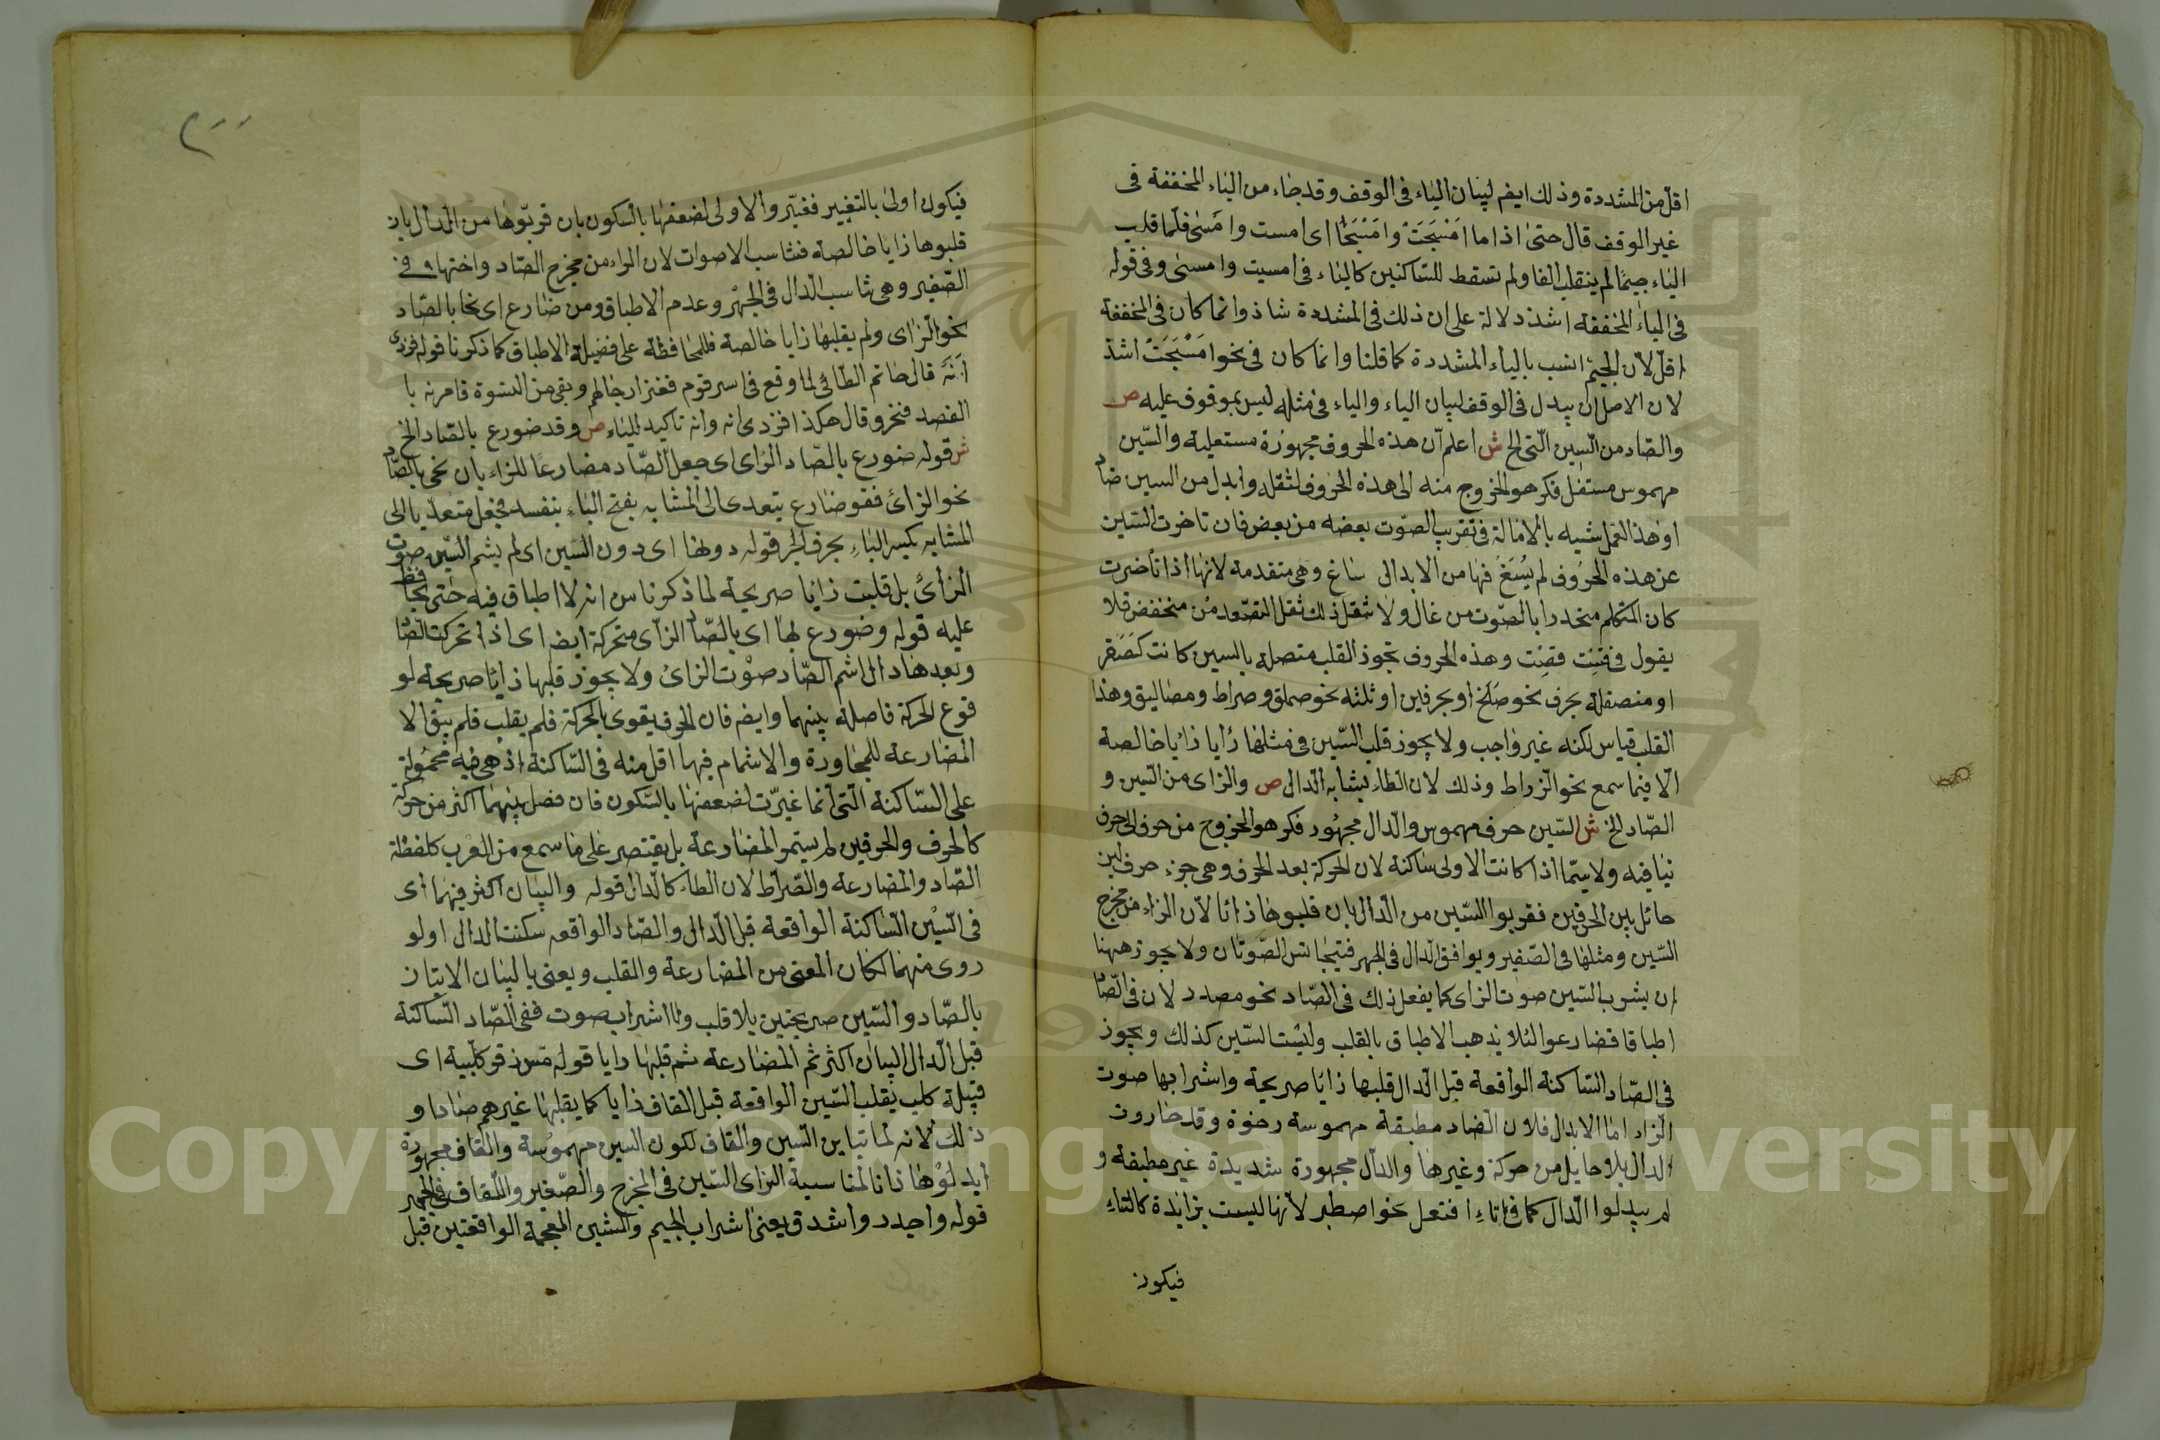 اقل من المشددة وذلك ايضم لبيان الياء فى الوقف وقد جاء من الياء المخففة فى
غير الوقف قال حتى اذا ما امسجت وامسجا اى امست وامسى فلما قلب
الياء جيمًا لم ينقلب الفا ولم تسقط للساكنين كالياء فى امسيت وامسى وفى قوله
فى الياء المخففة اشذ دلالة على ان ذلك فى المشددة شاذ وانما كان فى المخففة
اقل لان الجيم انسب بالياء المشددة كما قلنا وانما كان فى نحو امسجت اشذ
لان الاصل ان يبدل فى الوقف لبيان الياء والياء فى مثله ليس بموقوف عليه ص
والصاد من السين التى الخ ش اعلم ان هذه الحروف مجهورة مستعلية والسين
مهموس مستفل فكرهوا الخروج منه الى هذه الحروف لثقله وابدل من السين صاد
وهذا العمل شبيه بالامالة فى تقريب الصوت بعضه من بعض فان تاخرت السين
عن هذه الحروف لم يسغ فيها من الابدال ساغ وهى متقدمة لانها اذا تاخرت
كان المتكلم منحدرا بالصوت من عال ولا تثقل ذلك ثقل التصعد من منخفض فلا
يقول فى قست قصت وهذه الحروف تجوز القلب متصلة بالسين كانت كصقر
او منفصلة بحرف نحو صلخ او بحرفين او ثلثه نحو صملق وصراط ومصاليق وهذا
القلب قياس لكنه غير واجب ولا يجوز قلب السين فى مثلها زايا خالصة
الا فيما سمع نحو الزراط وذلك لان الطاء يشابه الدال ص والزاى من السين و
الصاد الخ ش السين حرف مهموس والدال مجهور فكرهوا الخروج من حرف الى حرف
ينافيه ولا سيما اذا كانت الاولى ساكنة لان الحركة بعد الحرف وهى جزء حرف لين
حائل بين الحرفين فقربوا السين من الدال بان قلبوها زايا لان الزاء من مخرج
السين ومثلها فى الصفير ويوافق الدال فى الجهر فيتجانس الصوتان ولا يجوز ههنا
ان يشرب السين صوت الزاى كما يفعل ذلك فى الصاد نحو مصدر لان فى الصاد
اطباقا فضارعوا لئلا يذهب الاطباق بالقلب وليست السين كذلك ويجوز
فى الصاد الساكنة الواقعة قبل الدال قلبها زايا صريحة واشرابها صوت
الزاد اما الابدال فلان الصاد مطبقة مهموسة رخوة وقد جاورت
الدال بلا حايل من حركة وغيرها والدال مجهورة شديدة غير مطبقة و
لم يبدلوا الدال كما فى تاء افتعل نحو اصطبر لانها ليست بزايدة كالتاء
فيكون
٢٠٠
فيكون اولى بالتغيير فغيروا الاولى لضعفها بالسكون بان قربوها من الدال بان
قلبوها زايا خالصة فتناسب الاصوات لان الزاء من مخرج الصاد واختها فى
الصفير وهى تناسب الدال فى الجهر وعدم الاطباق ومن ضارع اى نحا بالصاد
نحو الزاى ولم يقلبها زايا خالصة فللمحافظة على فضيلة الاطباق كما ذكرنا قوله فزدى
انه قال حاتم الطائى لما وقع فى اسر قوم فغزا رجالهم وبقى من النسوة فامرنه با
لفصد فنحر وقال هكذا فزدى انه وانه تاكيد للياء ص وقد ضورع بالصاد الخ
ش قوله ضورع بالصاد الزاى اى جعل الصاد مضارعا للزاء بان نحى بالصاد
نحو الزاى فقو ضارع يتعدى الى المشابه بفتح الباء بنفسه فجعل متعديا الى
المشابه بكسر الباء بحرف الجر قوله دونها اى دون السين اى لم يشم السين صوت
الزاى بل قلبت زايا صريحة لما ذكرنا من انه لا اطباق فيه حتى يحافظ
عليه قوله وضورع بها اى بالصاد الزاى متحركة ايضا اى اذا تحركت الصاد
وبعدها دال اشم الصاد صوت الزاى ولا يجوز قلبها زايا صريحة لو
قوع الحركة فاصلة بينهما وايضا فان الحرف يقوى بالحركة فلم يقلب فلم يبق الا
المضارعة للمجاورة والاشمام فيها اقل منه فى الساكنة اذ هى فيه محمولة
على الساكنة التى انما غيرت لضعفها بالسكون فان فصل بينهما اكثر من حركة
كالحرف والحرفين لم يستمر المضارعة بل يقتصر على ما سمع من العرب كلفظة
الصاد والمضارعة والصراط لان الطاء كالدال قوله والبيان اكثر فيهما اى
فى السين الساكنة الواقعة قبل الدال والصاد الواقعه سكنت الدال او لو
روى منهما لكان المعنى من المضارعة والقلب ويعنى بالبيان الاتيان
بالصاد والسين صريحتين بلا قلب ولا اشراب صوت ففى الصاد الساكنة
قبل الدال البيان اكثر ثم المضارعة ثم قلبها زايا قوله مس زقر كلبية اى
قبيلة كلب يقلب السين الواقعة قبل القاف زايا كما يقلبها غيرهم صادا و
ذلك لانه لما تباين السين والقاف لكون السين مهموسة والقاف مجهورة
ابدلوها زايا لمناسبة الزاى السين فى المخرج والصفير وللقاف فى الجهر
قوله واجدر واشدق يعنى اشراب الجيم والشين المعجمة الواقعتين قبل